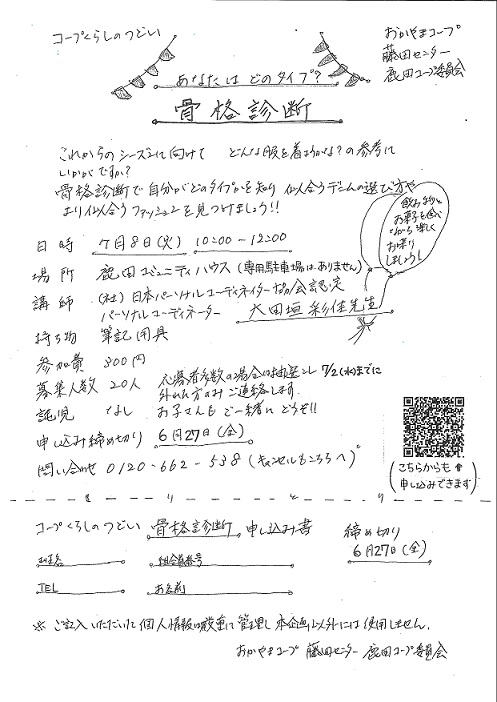 コープくらしのつどい
おかやまコープ
藤田センター
鹿田コープ委員会
あなたは どのタイプ?
骨格診断
これからのシーズンに向けて どんな服を着ようかな?の参考に
いかがですか?
骨格診断で自分がどのタイプかを知り 似合うデニムの選び方や
より似合うファッションを見つけましょう!!
飲み物と
お菓子を食べ
ながら楽しく
お喋り
しましょう
日時 7月8日(火) 10:00-12:00
場所 鹿田コミュニティハウス(専用駐車場はありません)
講師 (社)日本パーソナルコーディネイター協会認定
パーソナルコーディネーター 大田垣 彩佳先生
持ち物 筆記用具
参加費 300円
募集人数 20人 応募者多数の場合は抽選とし 7/2(水)までに
外れた方のみご連絡します
託児 なし お子さんもご一緒にどうぞ!!
申し込み締め切り 6月27日(金)
問い合わせ 0120-662-538(キャンセルもこちらへ)
(こちらからも↑
申し込みできます)
きりとり
コープくらしのつどい 骨格診断 申し込み書 締め切り
6月27日(金)
組合員番号
TEL お名前
※ ご記入いただいた個人情報は厳重に管理し本企画以外には使用しません。
おかやまコープ 藤田センター 鹿田コープ委員会